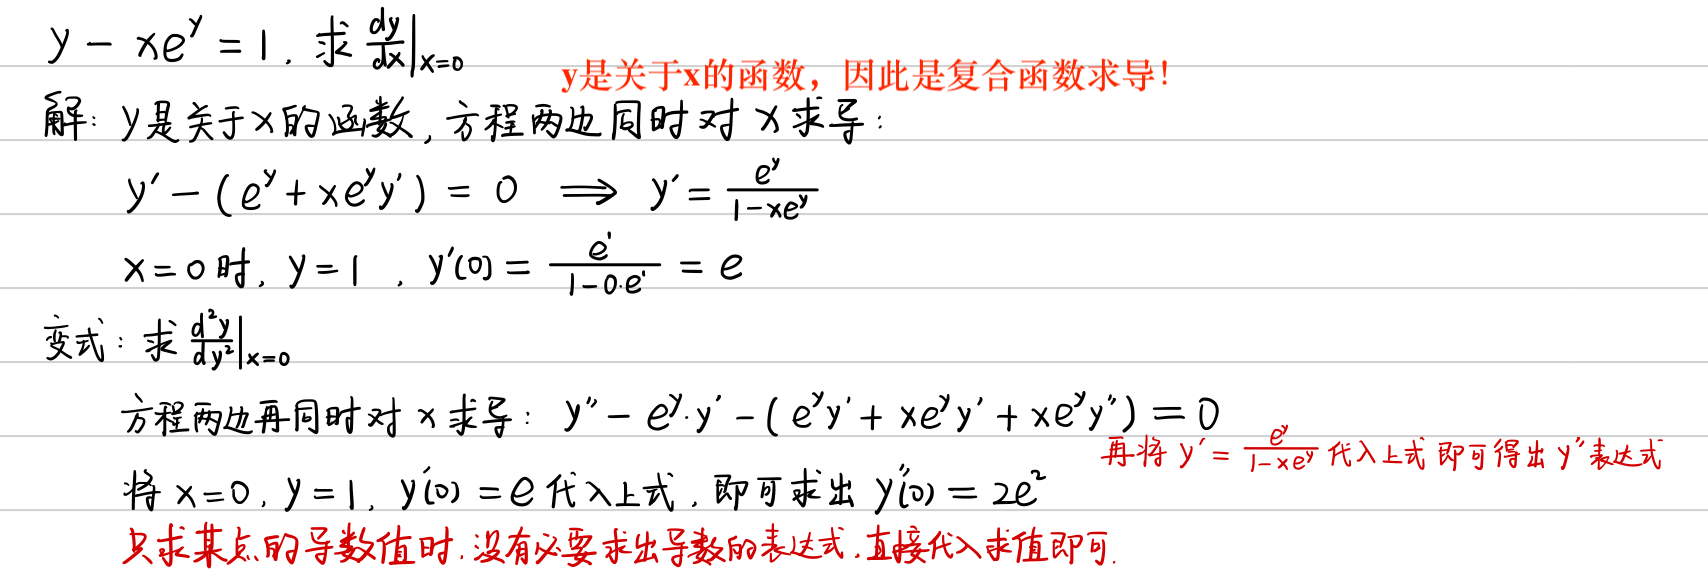 y - xe^y = 1. 求 dy/dx|x=0
y是关于x的函数，因此是复合函数求导！
解: y是关于x的函数, 方程两边同时对x求导:
y' - (e^y + xe^y y') = 0 ⟹ y' = e^y/(1-xe^y)
x=0时, y=1, y'(0) = e^1/(1-0·e^1) = e
变式: 求 d²y/dy²|x=0
方程两边再同时对x求导: y'' - e^y·y' - (e^y y' + xe^y y' + xe^y y'') = 0
再将 y' = e^y/(1-xe^y) 代入上式即可得出y''表达式
将x=0, y=1, y'(0) = e代入上式, 即可求出 y''(0) = 2e²
只求某点的导数值时, 没有必要求出导数的表达式, 直接代入求值即可.